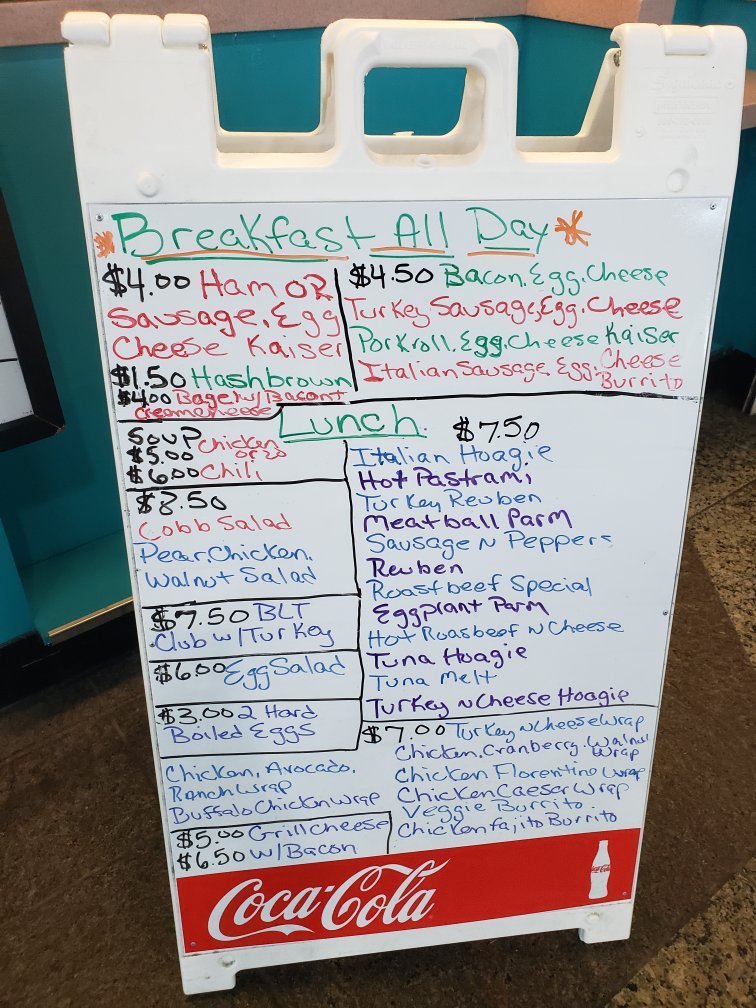 Breakfast All Day
$4.00 Ham OR
Sausage, Egg
Cheese Kaiser
$1.50 Hashbrown
$4.00 Bagel w/ Bacon +
creamcheese
$4.50 Bacon, Egg, Cheese
Turkey Sausage, Egg, Cheese
Porkroll, Egg, Cheese Kaiser
Italian Sausage, Egg, Cheese
Burrito
Lunch
Soup
$5.00 Chicken
orzo
$6.00 Chili
$8.50
Cobb Salad
Pear, Chicken,
Walnut Salad
$7.50 BLT
Club w/ Turkey
$6.00 Egg Salad
$3.00 2 Hard
Boiled Eggs
$7.50
Italian Hoagie
Hot Pastrami
Turkey Reuben
Meatball Parm
Sausage N Peppers
Reuben
Roastbeef Special
Eggplant Parm
Hot Roasbeef N Cheese
Tuna Hoagie
Tuna Melt
Turkey N Cheese Hoagie
$7.00 Turkey N Cheese Wrap
Chicken, Cranberry, Walnut
Wrap
Chicken Florentine Wrap
Chicken Caesar Wrap
Veggie Burrito
Chicken fajito Burrito
Chicken, Avocado,
Ranch Wrap
Buffalo Chicken Wrap
$5.00 Grill Cheese
$6.50 w/ Bacon
Coca-Cola